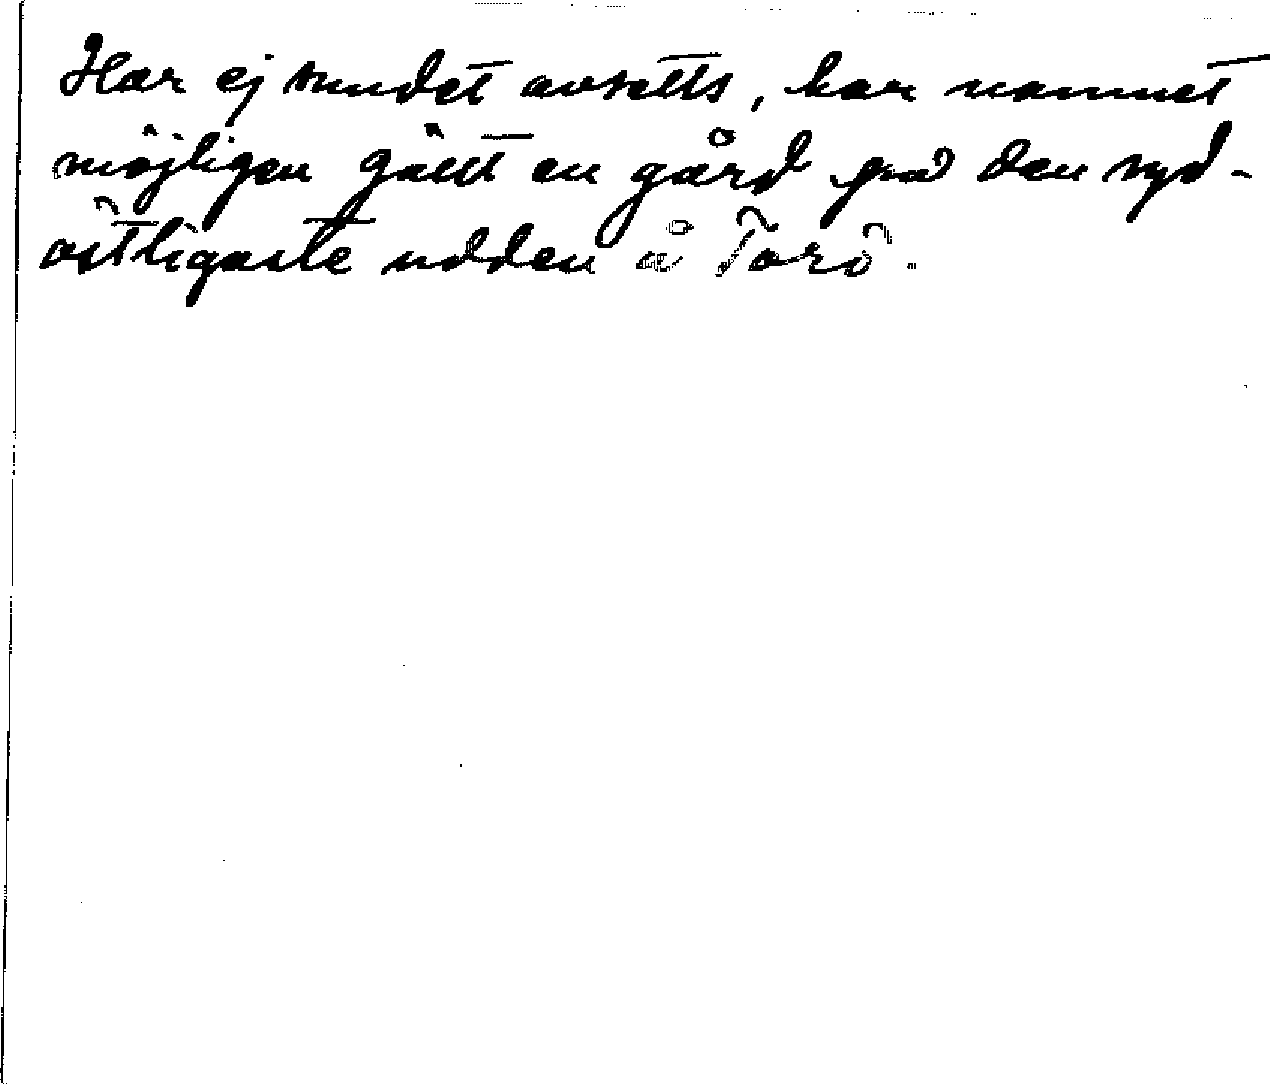 Har ej sundet avsetts, kan namnet
möjligen gällt en gård på den syd-
östligaste udden å Torö.